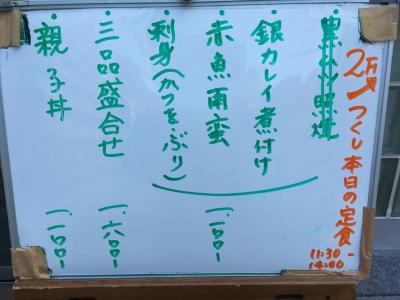 2万つくし本日の定食
11:30-
14:00
・黒ムツ照焼
・銀カレイ煮付け
・赤魚南蛮
・刺身(かつを・ぶり)
一、一〇〇-
・三品盛合せ
一、六〇〇-
・親子丼
一、一〇〇-